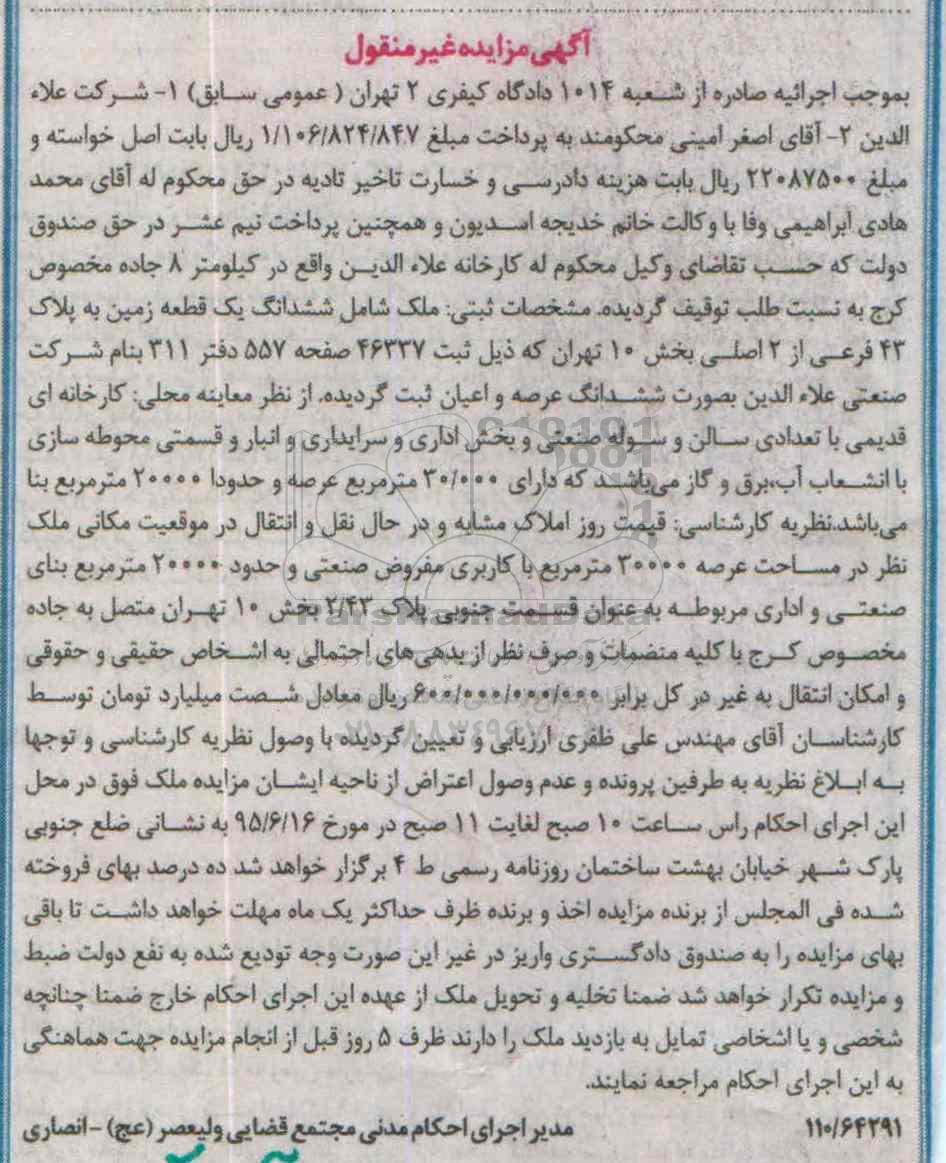 آگهی مزایده غیرمنقول
بموجب اجرائیه صادره از شعبه ۱۰۱۴ دادگاه کیفری ۲ تهران ( عمومی سابق) ۱- شرکت علاء
الدین ۲- آقای اصغر امینی محکومند به پرداخت مبلغ ۱/۱۰۶/۸۲۴/۸۴۷ ریال بابت اصل خواسته و
مبلغ ۲۲۰۸۷۵۰۰ ریال بابت هزینه دادرسی و خسارت تاخیر تادیه در حق محکوم له آقای محمد
هادی ابراهیمی وفا با وکالت خانم خدیجه اسدیون و همچنین پرداخت نیم عشر در حق صندوق
دولت که حسب تقاضای وکیل محکوم له کارخانه علاء الدین واقع در کیلومتر ۸ جاده مخصوص
کرج به نسبت طلب توقیف گردیده. مشخصات ثبتی: ملک شامل ششدانگ یک قطعه زمین به پلاک
۴۳ فرعی از ۲ اصلی بخش ۱۰ تهران که ذیل ثبت ۴۶۳۳۷ صفحه ۵۵۷ دفتر ۳۱۱ بنام شرکت
صنعتی علاء الدین بصورت ششدانگ عرصه و اعیان ثبت گردیده. از نظر معاینه محلی: کارخانه ای
قدیمی با تعدادی سالن و سوله صنعتی و بخش اداری و سرایداری و انبار و قسمتی محوطه سازی
با انشعاب آب،برق و گاز می‌باشد که دارای ۳۰/۰۰۰ مترمربع عرصه و حدودا ۲۰۰۰۰ مترمربع بنا
می‌باشد.نظریه کارشناسی: قیمت روز املاک مشابه و در حال نقل و انتقال در موقعیت مکانی ملک
نظر در مساحت عرصه ۳۰۰۰۰ مترمربع با کاربری مفروض صنعتی و حدود ۲۰۰۰۰ مترمربع بنای
صنعتی و اداری مربوطه به عنوان قسمت جنوبی پلاک ۲/۴۳ بخش ۱۰ تهران متصل به جاده
مخصوص کرج با کلیه منضمات و صرف نظر از بدهی‌های احتمالی به اشخاص حقیقی و حقوقی
و امکان انتقال به غیر در کل برابر ۶۰۰/۰۰۰/۰۰۰/۰۰۰ ریال معادل شصت میلیارد تومان توسط
کارشناسان آقای مهندس علی ظفری ارزیابی و تعیین گردیده با وصول نظریه کارشناسی و توجها
به ابلاغ نظریه به طرفین پرونده و عدم وصول اعتراض از ناحیه ایشان مزایده ملک فوق در محل
این اجرای احکام راس ساعت ۱۰ صبح لغایت ۱۱ صبح در مورخ ۹۵/۶/۱۶ به نشانی ضلع جنوبی
پارک شهر خیابان بهشت ساختمان روزنامه رسمی ط ۴ برگزار خواهد شد ده درصد بهای فروخته
شده فی المجلس از برنده مزایده اخذ و برنده ظرف حداکثر یک ماه مهلت خواهد داشت تا باقی
بهای مزایده را به صندوق دادگستری واریز در غیر این صورت وجه تودیع شده به نفع دولت ضبط
و مزایده تکرار خواهد شد ضمنا تخلیه و تحویل ملک از عهده این اجرای احکام خارج ضمنا چنانچه
شخصی و یا اشخاصی تمایل به بازدید ملک را دارند ظرف ۵ روز قبل از انجام مزایده جهت هماهنگی
به این اجرای احکام مراجعه نمایند.
۱۱۰/۶۴۲۹۱ مدیر اجرای احکام مدنی مجتمع قضایی ولیعصر (عج) - انصاری